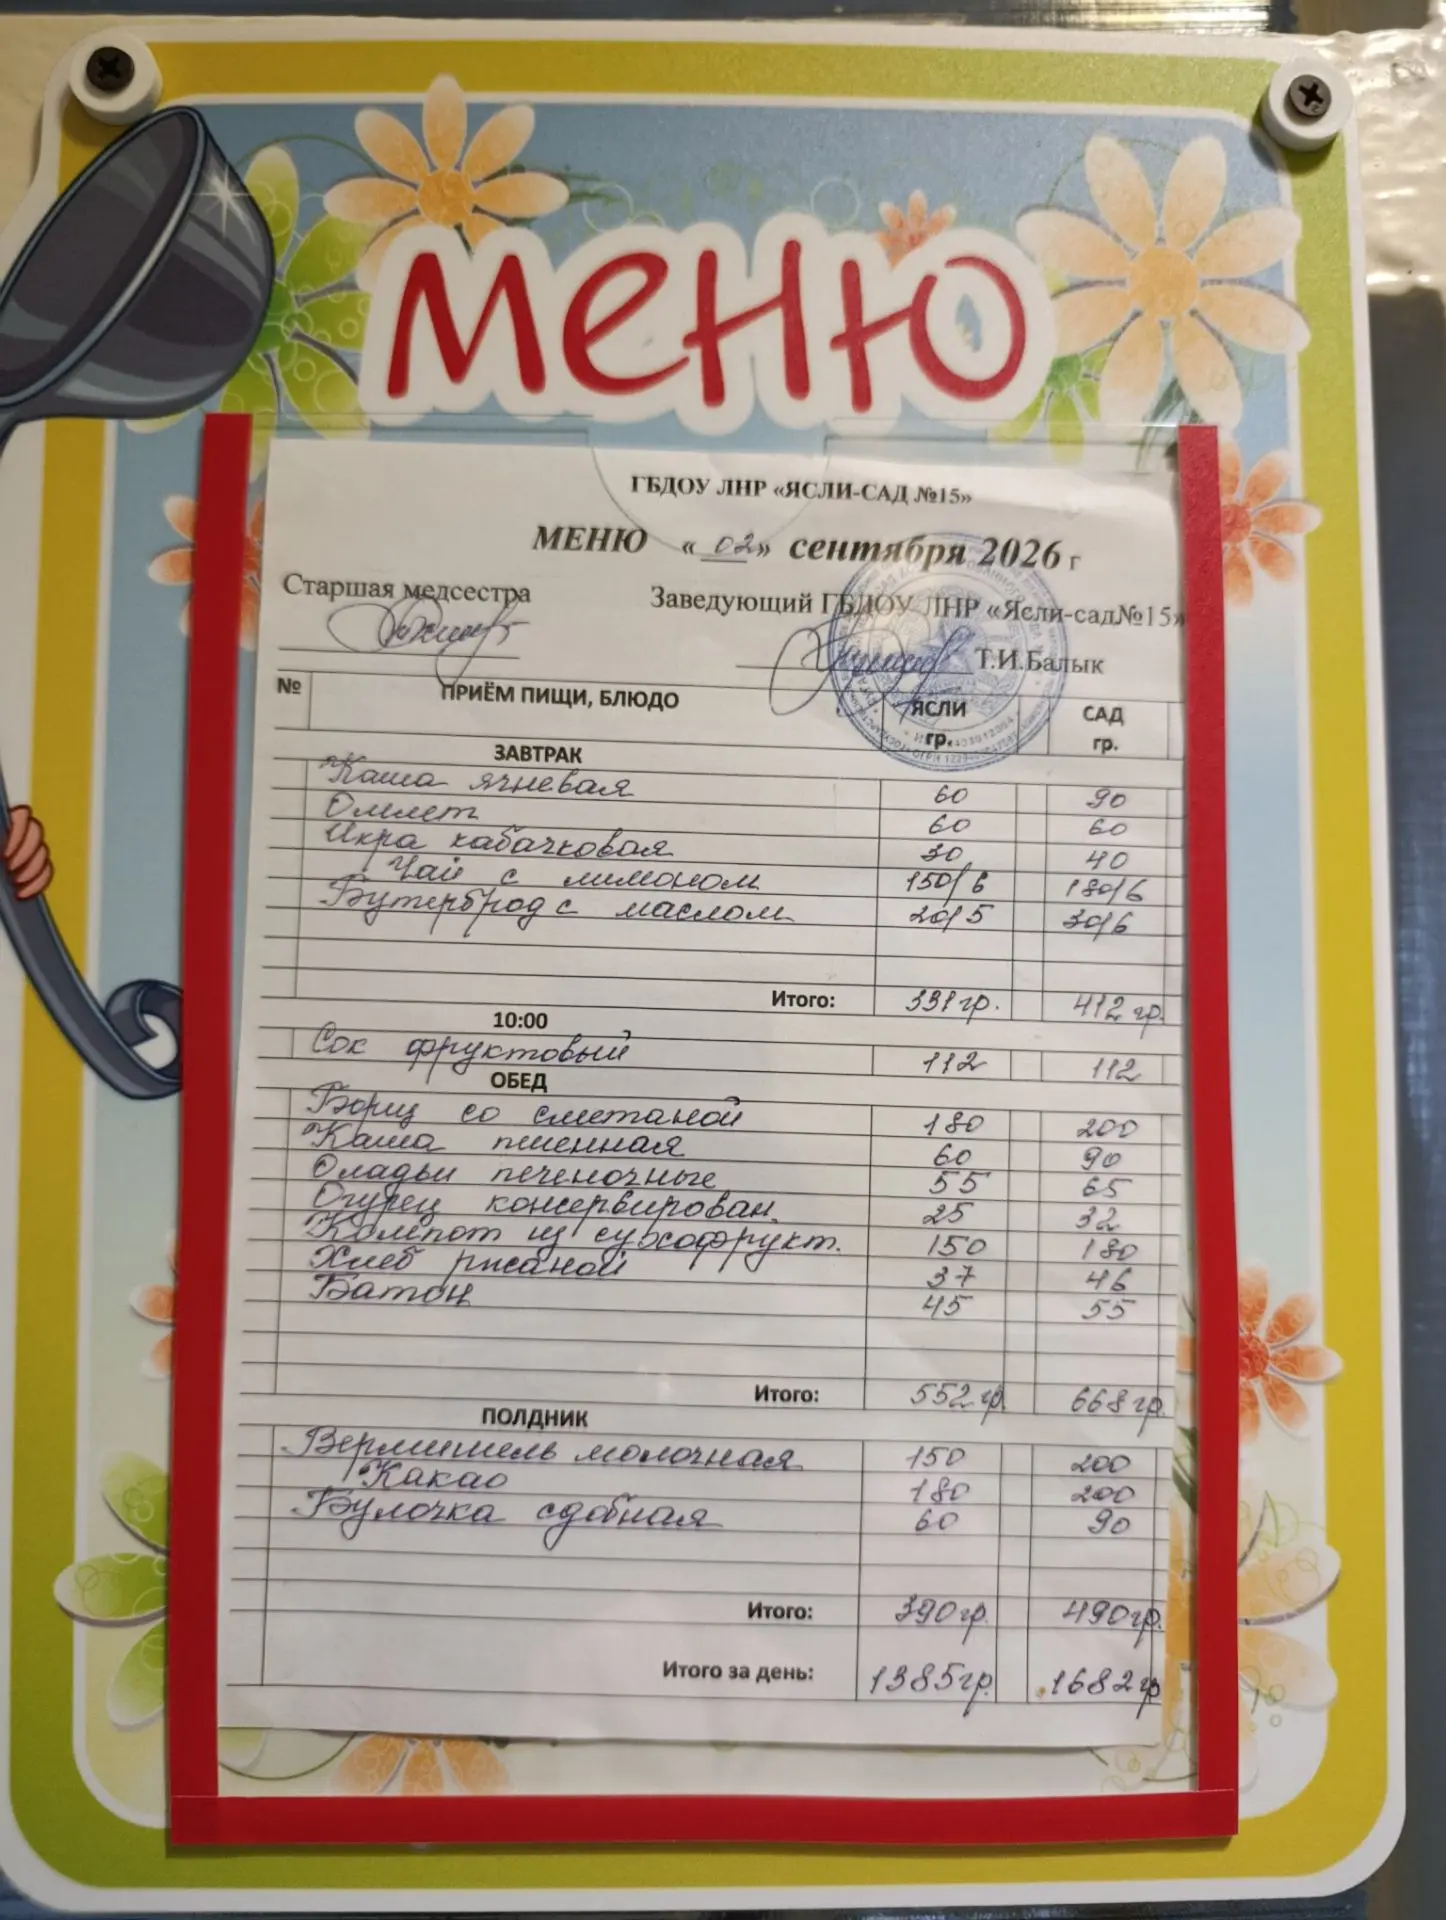 меню
ГБДОУ ЛНР «ЯСЛИ-САД №15»
МЕНЮ «02» сентября 2026 г
Старшая медсестра Заведующий ГБДОУ ЛНР «Ясли-сад№15»
Т.И.Балык
№ ПРИЁМ ПИЩИ, БЛЮДО ЯСЛИ гр. САД гр.
ЗАВТРАК
Каша ячневая 60 90
Омлет 60 60
Икра кабачковая 30 40
Чай с лимоном 150/6 180/6
Бутерброд с маслом 20/5 30/6
Итого: 331гр. 412 гр.
10:00
Сок фруктовый 112 112
ОБЕД
Борщ со сметаной 180 200
Каша пшенная 60 90
Оладьи печеночные 55 65
Огурец консервирован. 25 32
Компот из сухофрукт. 150 180
Хлеб ржаной 37 46
Батон 45 55
Итого: 552 гр. 668 гр.
ПОЛДНИК
Вермишель молочная 150 200
Какао 180 200
Булочка сдобная 60 90
Итого: 390гр. 490гр.
Итого за день: 1385гр. 1682 гр